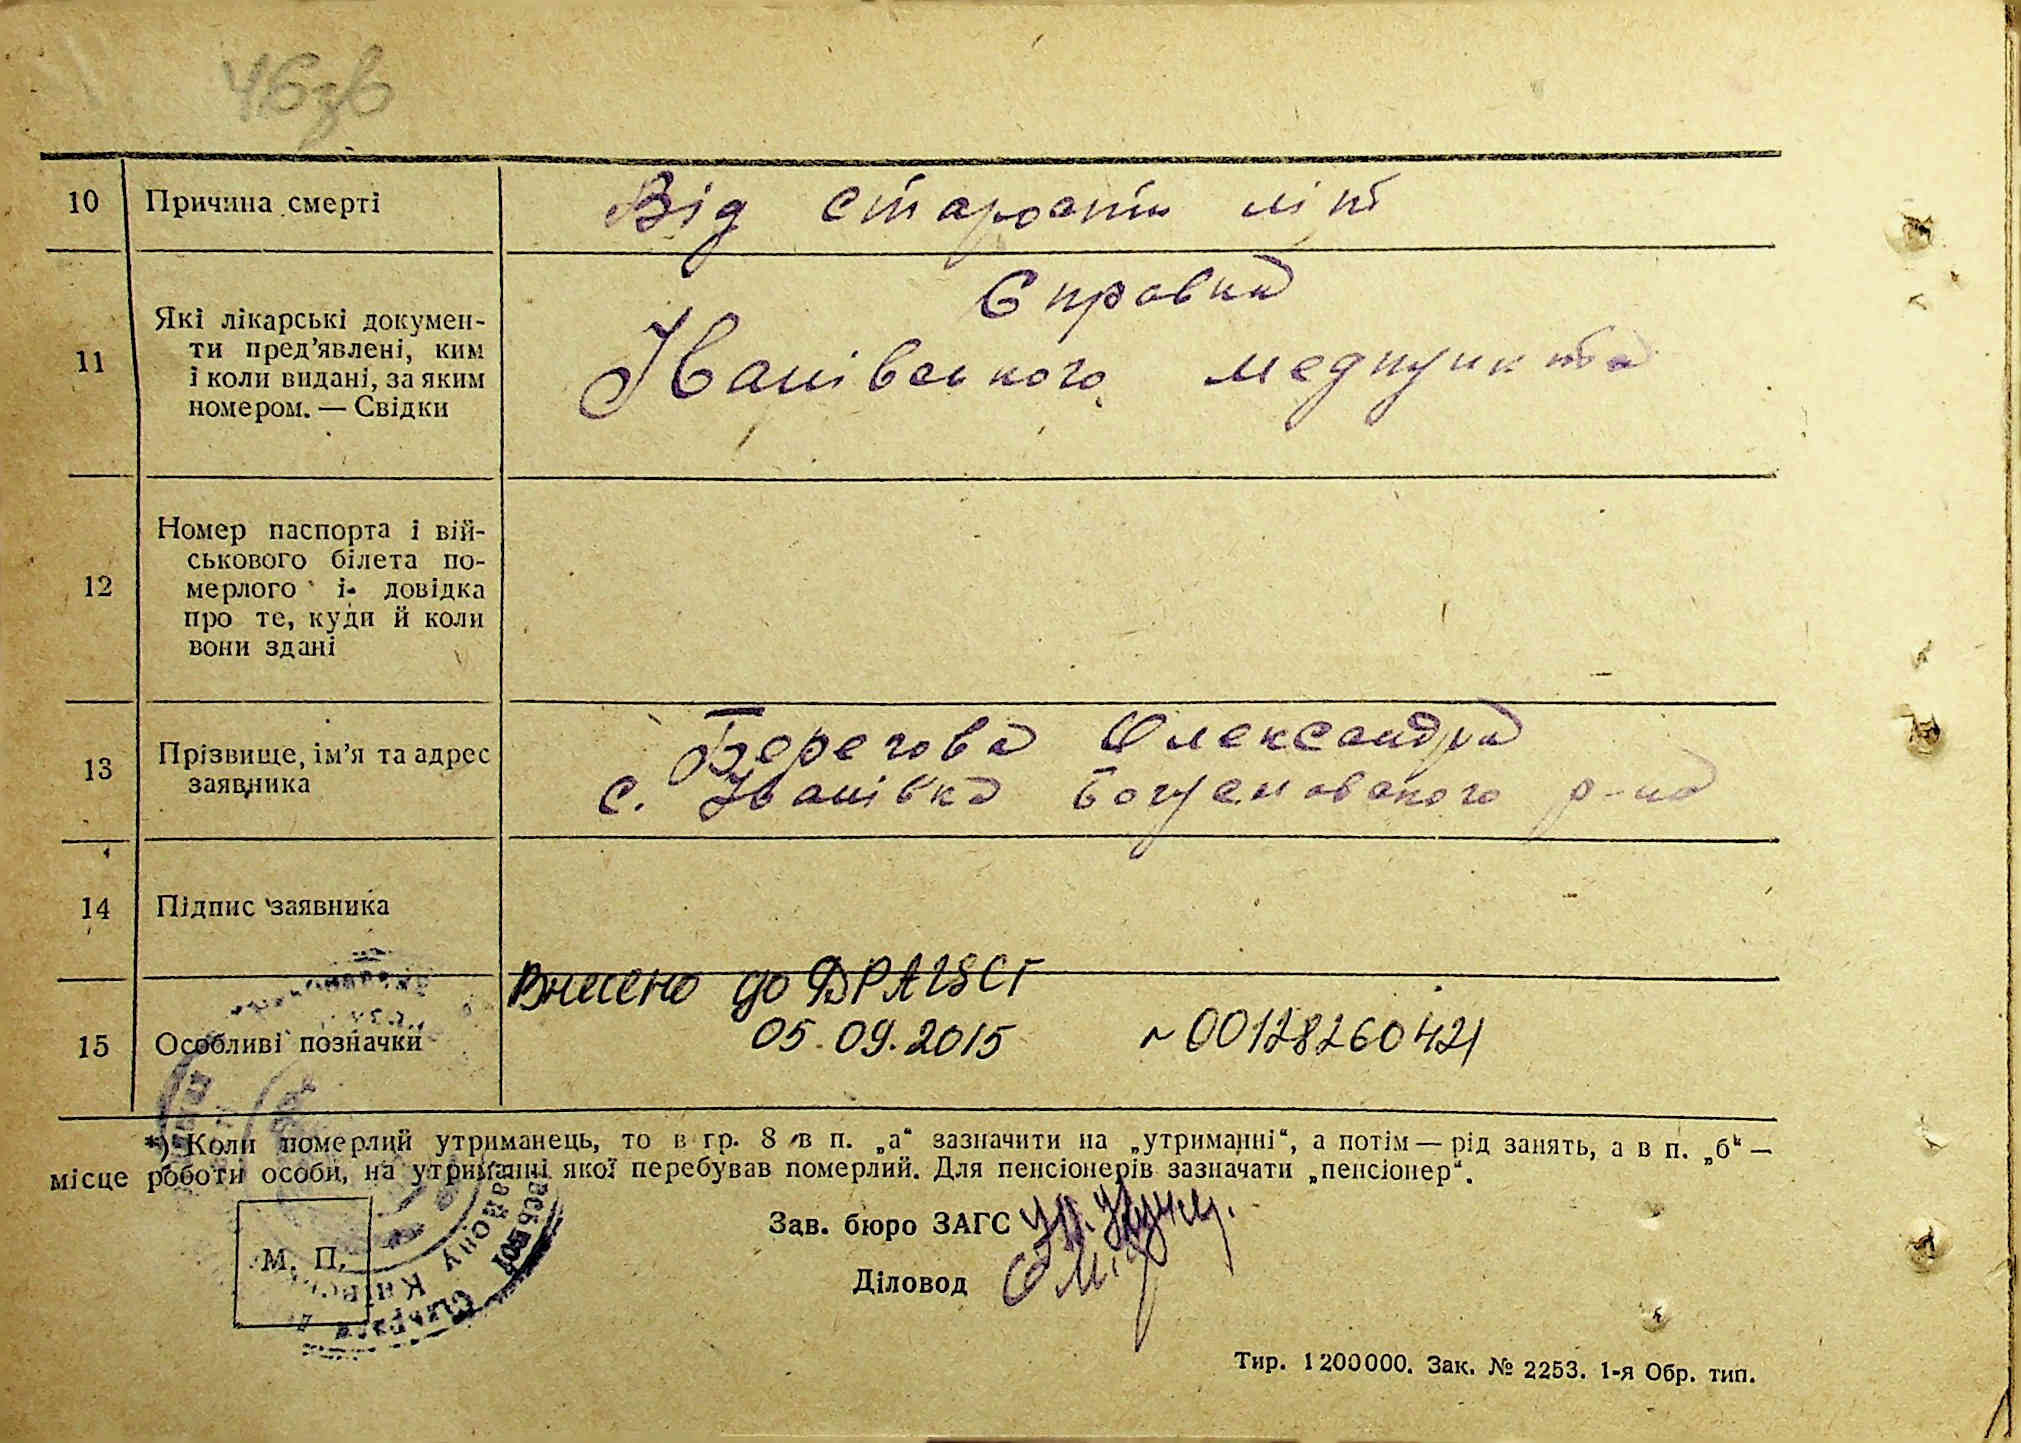 46зв
10 Причина смерті Від старости літ
11 Які лікарські докумен-
ти пред'явлені, ким
і коли видані, за яким
номером. — Свідки
Справка
Іванівського медпункта
12 Номер паспорта і вій-
ськового білета по-
мерлого і довідка
про те, куди й коли
вони здані
13 Прізвище, ім'я та адрес
заявника
Берегова Олександра
с. Іванівка р-на
14 Підпис заявника
15 Особливі позначки
Внесено до ДРАЦСГ
05.09.2015 ~00128260421
*) Коли померлий утриманець, то в гр. 8 в п. „а“ зазначити на „утриманні“, а потім — рід занять, а в п. „б“ —
місце роботи особи, на утриманні якої перебував померлий. Для пенсіонерів зазначати „пенсіонер“.
Зав. бюро ЗАГС
Діловод
М. П.
Тир. 1200000. Зак. № 2253. 1-я Обр. тип.